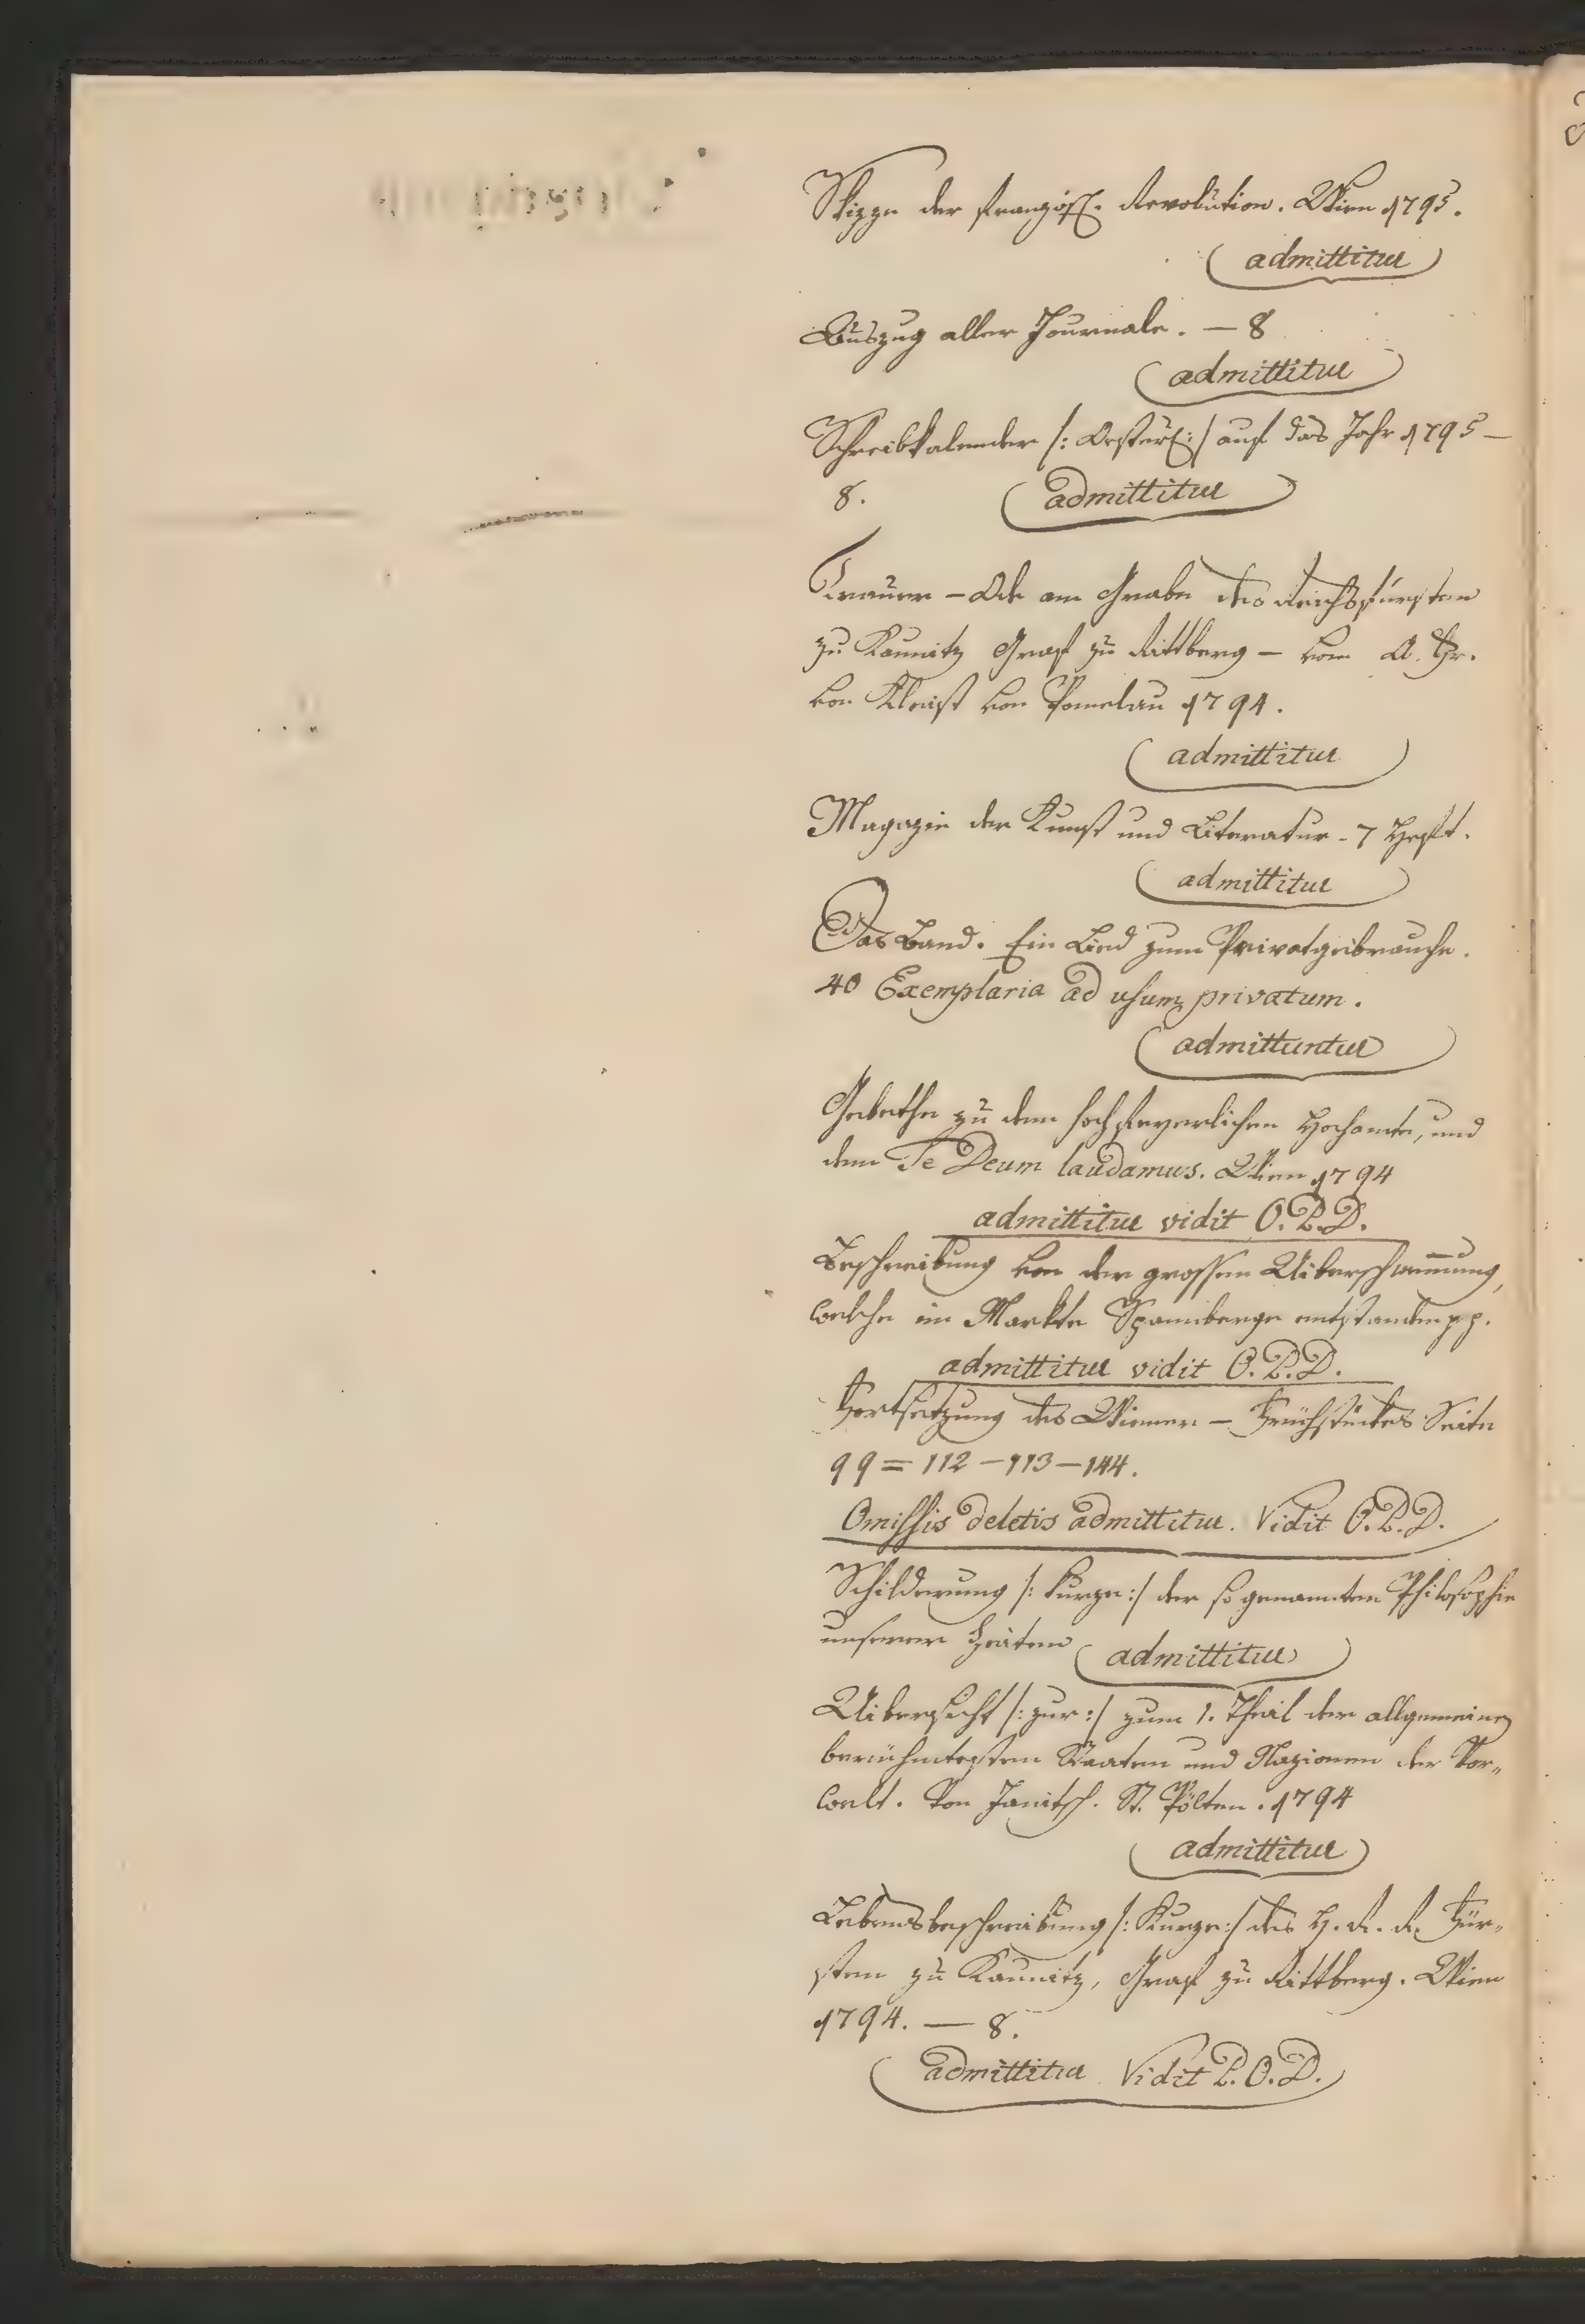 Skizze der französ. Revolution. Wien 1795.
admittitur
Auszug aller Journale. — 8
admittitur
Schreibkalender /: Oesterr: / auf das Jahr 1795 —
8. admittitur
Trauer - Ode am Grabe des Reichsfürsten
zu Kaunitz Graf zu Rittberg — von A. Fr.
von Kleist von 1794.
admittitur
Magazin der Kunst und Literatur - 7 Heft.
admittitur
Das Band. Ein Lied zum Privatgebrauche.
40 Exemplaria ad usum privatum.
admittuntur
Gebethe zu dem hochfeyerlichen Hochamte, und
dem Te Deum laudamus. Wien 1794
admittitur vidit O.P.D.
Beschreibung von der grossen Uiberschwem̄ung,
welche im Markte Spannberge entstanden pp.
admittitur vidit O.P.D.
Fortsetzung des Wiener - Frühstückes Seite
99 = 112 — 113 — 144.
Omissis deletis admittitur. Vidit O.P.D.
Schilderung /: kurze :/ der so genannten Philosophie
unserer Zeiten admittitur
Uibersicht /: zur :/ zum 1. Theil der allgemeinen
berühmtesten Staaten und Nazionen der Vor„
welt. Von Janitsch. St. Pölten. 1794
admittitur
Lebensbeschreibung /: Kurze :/ des H. R. R. Für„
sten zu Kaunitz, Graf zu Rittberg. Wien
1794. — 8.
admittitur Vidit P.O.D.